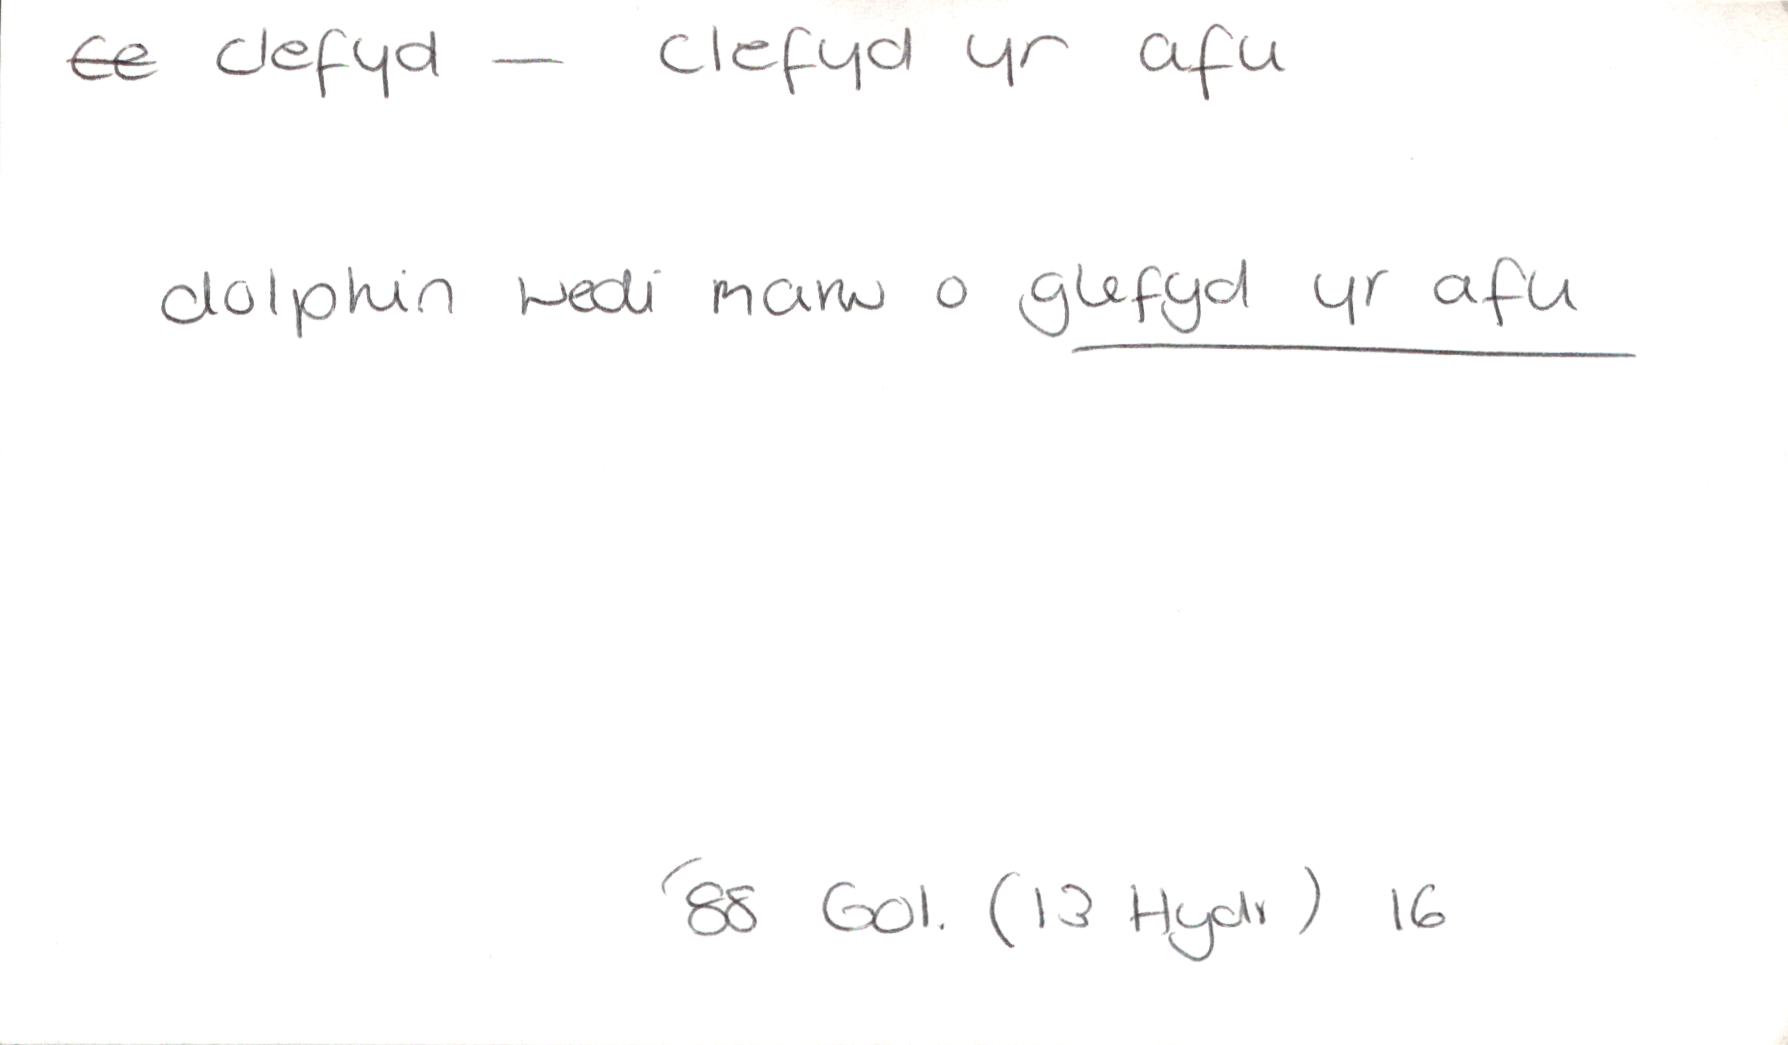 clefyd — clefyd yr afu
dolphin wedi marw o glefyd yr afu
'88 Gol. (13 Hydr) 16